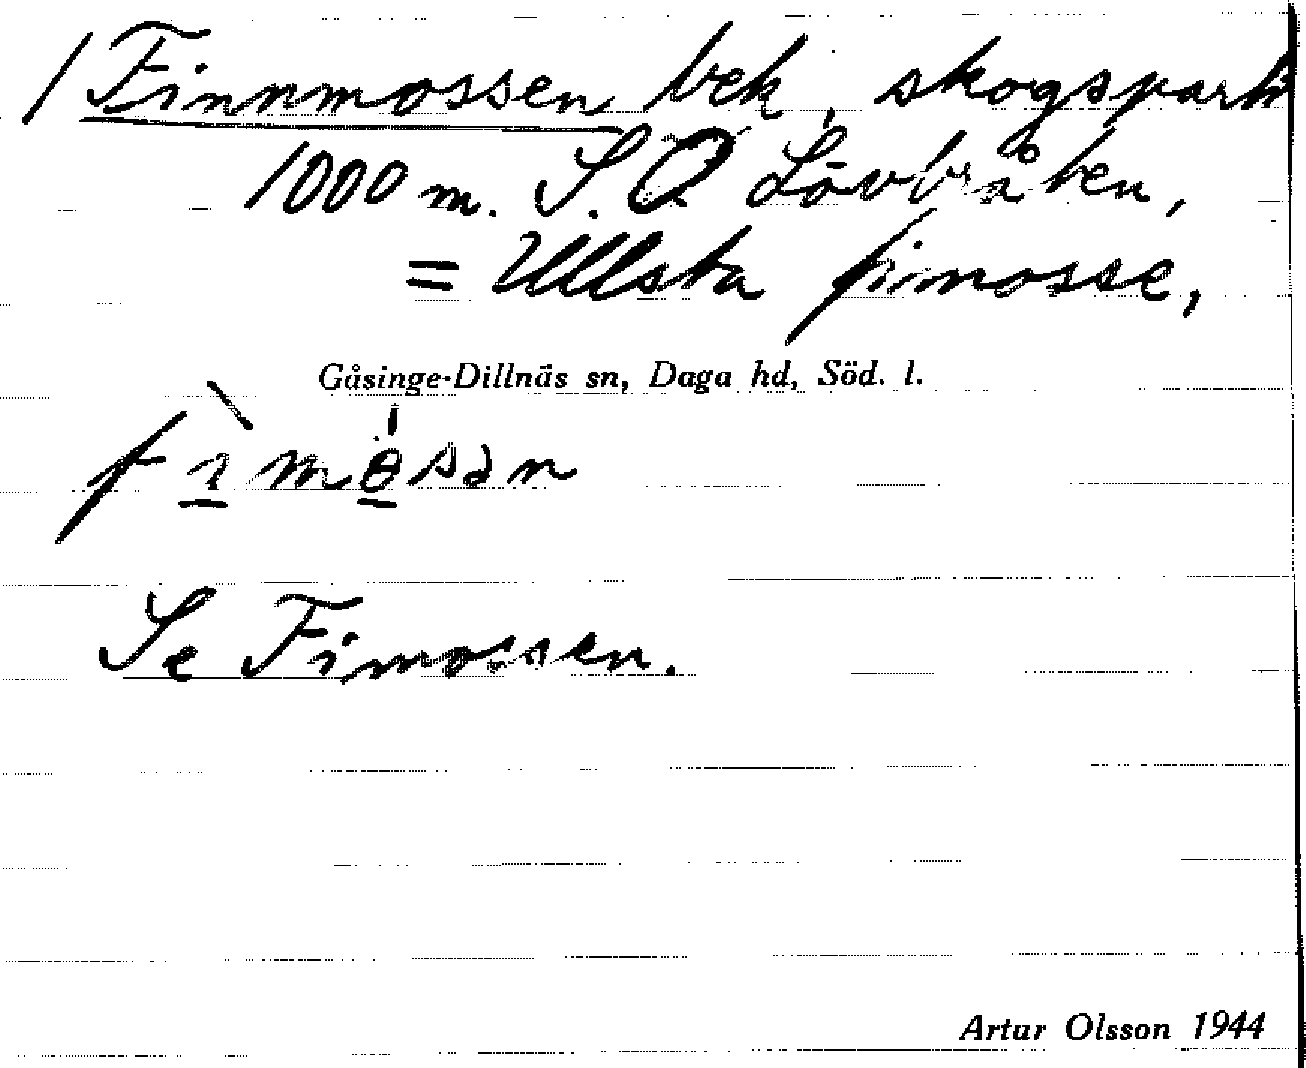 / Finnmossen bek, skogspark
1000 m. S.O Lövbråten,
= Ullsta fimosse,
Gåsinge-Dillnäs sn, Daga hd, Söd. l.
Se Fimossen.
Artur Olsson 1944